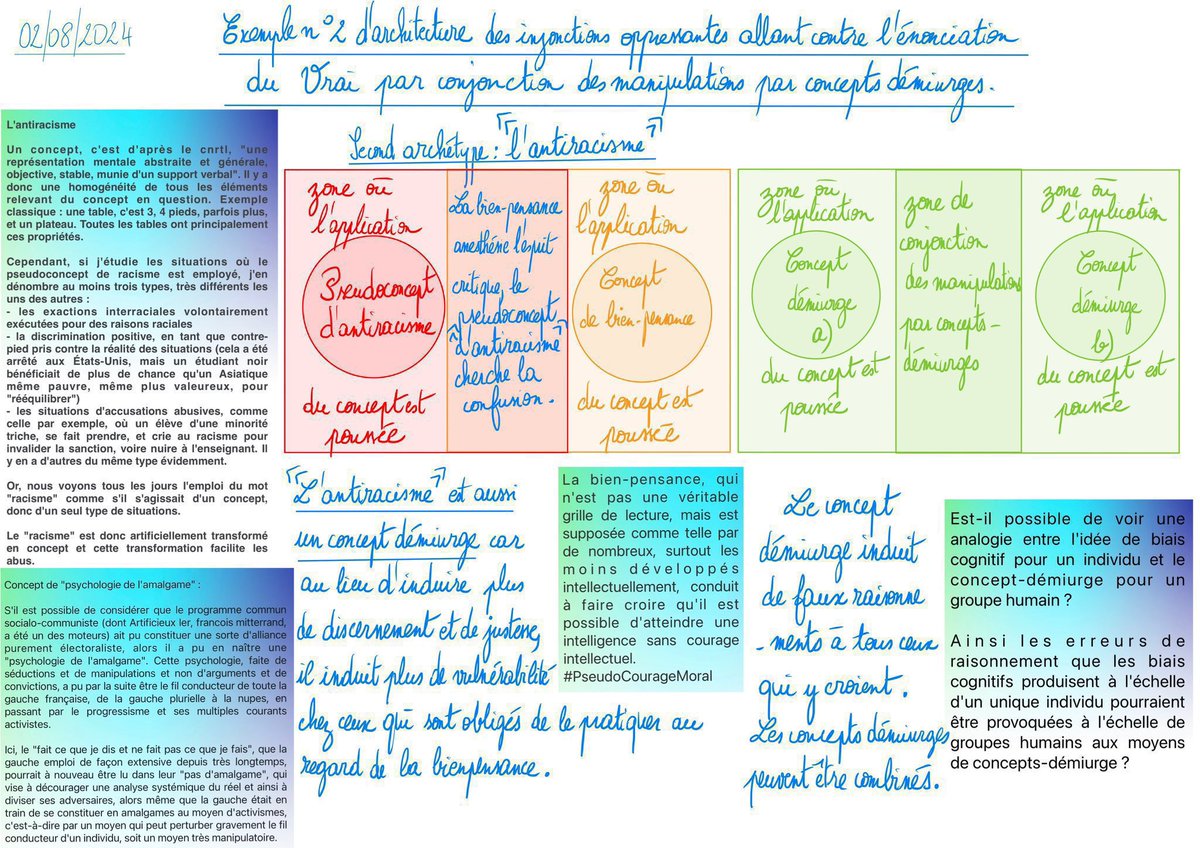 02/08/2024
Exemple n°2 d'architecture des injonctions oppressantes allant contre l'énonciation
du Vrai par conjonction des manipulations par concepts démiurges.
Second archétype : "l'antiracisme"
L'antiracisme
Un concept, c'est d'après le cnrtl, "une
représentation mentale abstraite et générale,
objective, stable, munie d'un support verbal". Il y a
donc une homogénéité de tous les éléments
relevant du concept en question. Exemple
classique : une table, c'est 3, 4 pieds, parfois plus,
et un plateau. Toutes les tables ont principalement
ces propriétés.
Cependant, si j'étudie les situations où le
pseudoconcept de racisme est employé, j'en
dénombre au moins trois types, très différents les
uns des autres :
- les exactions interraciales volontairement
exécutées pour des raisons raciales
- la discrimination positive, en tant que contre-
pied pris contre la réalité des situations (cela a été
arrêté aux États-Unis, mais un étudiant noir
bénéficiait de plus de chance qu'un Asiatique
même pauvre, même plus valeureux, pour
"rééquilibrer")
- les situations d'accusations abusives, comme
celle par exemple, où un élève d'une minorité
triche, se fait prendre, et crie au racisme pour
invalider la sanction, voire nuire à l'enseignant. Il
y en a d'autres du même type évidemment.
Or, nous voyons tous les jours l'emploi du mot
"racisme" comme s'il s'agissait d'un concept,
donc d'un seul type de situations.
Le "racisme" est donc artificiellement transformé
en concept et cette transformation facilite les
abus.
Concept de "psychologie de l'amalgame" :
S'il est possible de considérer que le programme commun
socialo-communiste (dont Artificieux Ier, francois mitterrand,
a été un des moteurs) ait pu constituer une sorte d'alliance
purement électoraliste, alors il a pu en naître une
"psychologie de l'amalgame". Cette psychologie, faite de
séductions et de manipulations et non d'arguments et de
convictions, a pu par la suite être le fil conducteur de toute la
gauche française, de la gauche plurielle à la nupes, en
passant par le progressisme et ses multiples courants
activistes.
Ici, le "fait ce que je dis et ne fait pas ce que je fais", que la
gauche emploi de façon extensive depuis très longtemps,
pourrait à nouveau être lu dans leur "pas d'amalgame", qui
vise à décourager une analyse systémique du réel et ainsi à
diviser ses adversaires, alors même que la gauche était en
train de se constituer en amalgames au moyen d'activismes,
c'est-à-dire par un moyen qui peut perturber gravement le fil
conducteur d'un individu, soit un moyen très manipulatoire.
zone où
l'application
Pseudoconcept
d'antiracisme
du concept est
poussée
La bien-pensance
anesthésie l'esprit
critique, le
pseudoconcept
"d'antiracisme"
cherche la
confusion.
zone où
l'application
Concept
de bien-pensance
du concept est
poussée
zone où
l'application
Concept
démiurge
a)
du concept est
poussée
zone de
conjonction
des manipulations
par concepts-
démiurges
zone où
l'application
Concept
démiurge
b)
du concept est
poussée
"L'antiracisme" est aussi
un concept démiurge car
au lieu d'induire plus
de discernement et de justesse,
il induit plus de vulnérabilité
chez ceux qui sont obligés de le pratiquer au
regard de la bienpensance.
La bien-pensance, qui
n'est pas une véritable
grille de lecture, mais est
supposée comme telle par
de nombreux, surtout les
moins développés
intellectuellement, conduit
à faire croire qu'il est
possible d'atteindre une
intelligence sans courage
intellectuel.
#PseudoCourageMoral
Le concept
démiurge induit
de faux raisonne
-ments à tous ceux
qui y croient.
Les concepts démiurges
peuvent être combinés.
Est-il possible de voir une
analogie entre l'idée de biais
cognitif pour un individu et le
concept-démiurge pour un
groupe humain ?
Ainsi les erreurs de
raisonnement que les biais
cognitifs produisent à l'échelle
d'un unique individu pourraient
être provoquées à l'échelle de
groupes humains aux moyens
de concepts-démiurge ?